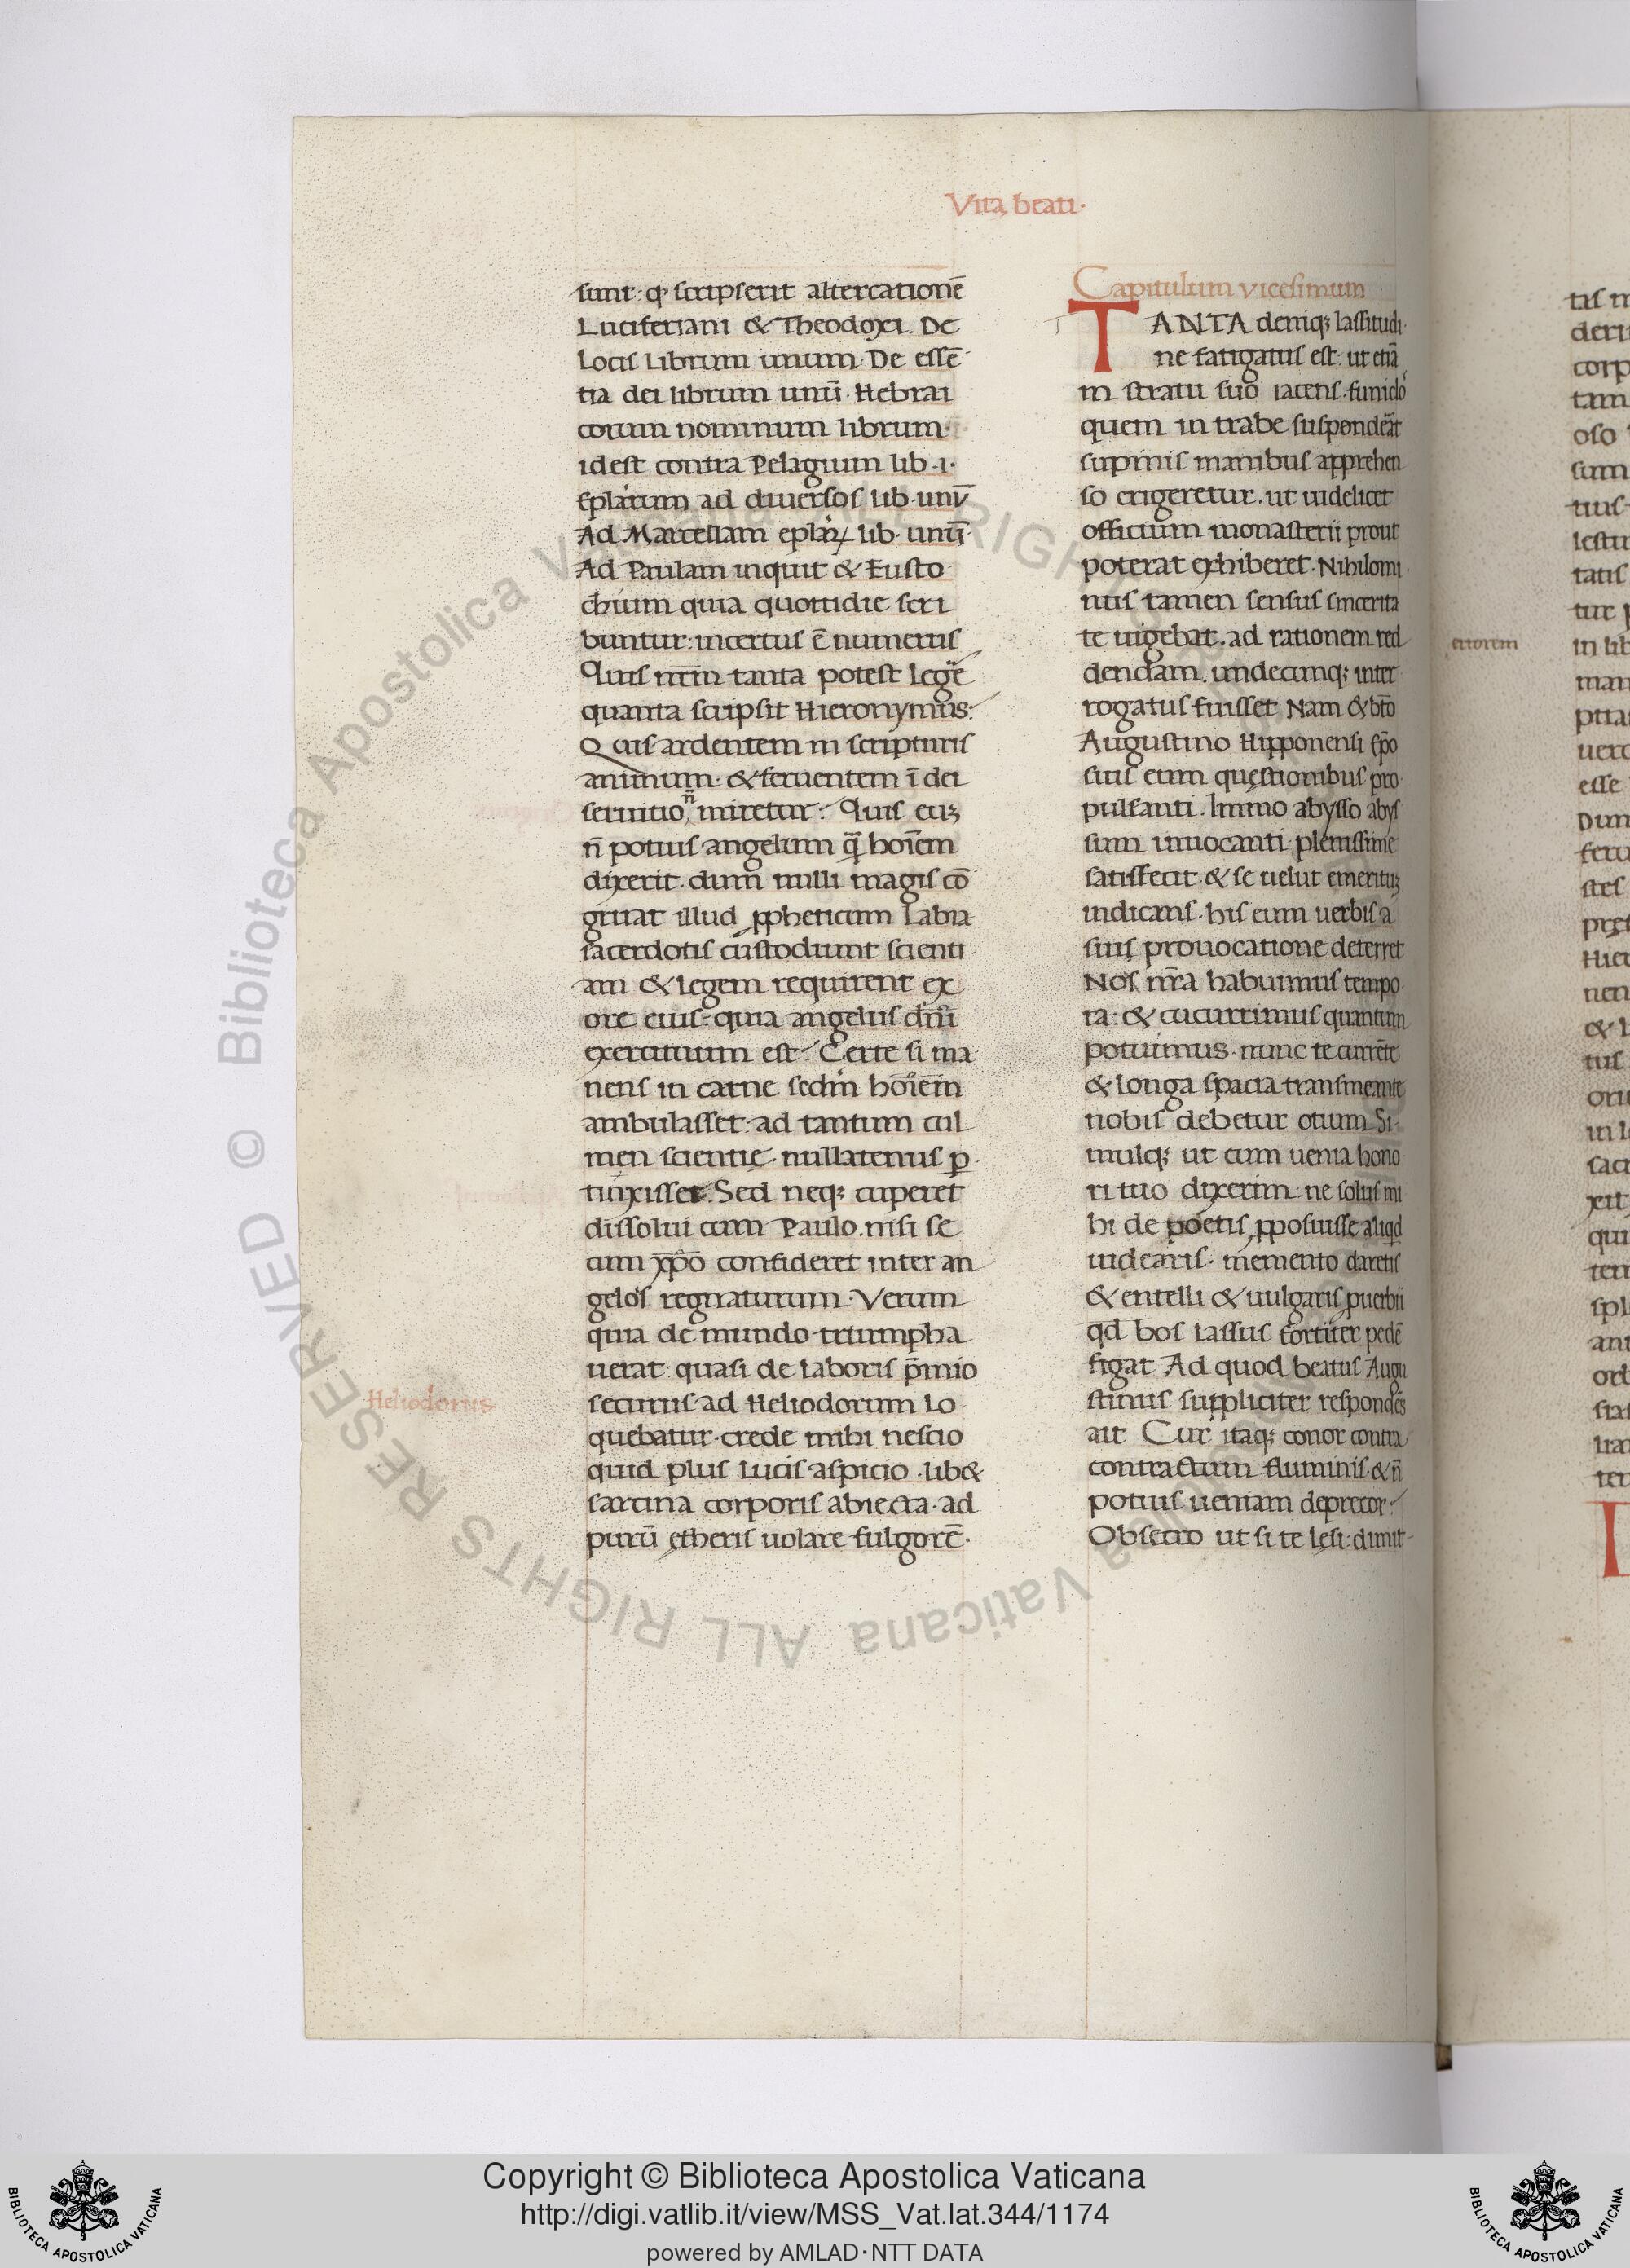 Vita beati·
sunt: q̨ scripserit altercationē
Luciferiani & Theodoxi. De
Locis Librum unum· De essē
tia dei librum unū· Hebrai
corum nominum librum·
idest contra Pelagium lib·i·
Eplarum ad diuersos lib·unū
Ad Marcellam eplaꝝ lib·unū·
Ad Paulam inquit & Eusto
chium quia quottidie scri
buntur: incertus ē numerus
Quis nr̄m tanta potest legē
quanta scripsit Hieronymus:
Quis ardentem in scripturis
animum· & feruentem ī dei
seruitio n̄ miretur? Quis euꝫ
n̄ potius angelum q̄ hoīem
dixerit· dum nulli magis cō
gruat illud ꝓpheticum Labia
sacerdotis custodiunt scienti
am & legem requirent ex
ore eius: quia angelus dn̄i
exercituum est? Certe si ma
nens in carne secdm hoīem
ambulasset: ad tantum cul
men scientię nullatenus ꝑ
tinxisset. Sed neqꝫ cuperet
dissolui cum Paulo· nisi se
cum xp̄o confideret inter an
gelos regnaturum· Verum
quia de mundo triumpha
uerat· quasi de laboris p̄mio
securus· ad Heliodorum Lo
quebatur· crede mihi nescio
quid plus Lucis aspicio· lib&
sarcina corporis abiecta· ad
purū ętheris uolare fulgorē·
Heliodorus
Capitulum vicesimum
TANTA deniqꝫ lassitudi
ne fatigatus est: ut etiā
in stratu suo iacens· funiclo
quem in trabe suspenderat
supinis manibus apprehen
so erigeretur· ut uidelicet
officium monasterii prout
poterat exhiberet· Nihilomi
nus tamen sensus sincerita
te uigebat· ad rationem red
dendam· undecunqꝫ inter
rogatus fuisset Nam & bt̄o
Augustino Hipponensi ep̄o
suis eum quęstionibus pro
pulsanti· Immo abysso abys
sum inuocanti plenissime
satisfecit· & se uelut emerituꝫ
indicans· his eum uerbis a
suis prouocatione deterret
Nos nr̄a habuimus tempo
ra: & cucurrimus quantum
potuimus· nunc te currēte
& longa spacia transmeante
nobis debetur otium Si
mulqꝫ ut cum uenia hono
ri tuo dixerim: ne solus mi
hi de poetis ꝓposuisse aliqd
uidearis· memento daretis
& entelli & uulgaris ꝓuerbii
qd bos lassus fortiter pedē
figat Ad quod beatus Augu
stinus suppliciter respondēs
ait Cur itaqꝫ conor contra
contractum fluminis· & n̄
potius ueniam deprecor?
Obsecro ut si te lęsi: dimit
errorem
Copyright © Biblioteca Apostolica Vaticana
http://digi.vatlib.it/view/MSS_Vat.lat.344/1174
powered by AMLAD·NTT DATA
BIBLIOTECA APOSTOLICA VATICANA
BIBLIOTECA APOSTOLICA VATICANA
© Biblioteca Apostolica Vaticana ALL RIGHTS RESERVED